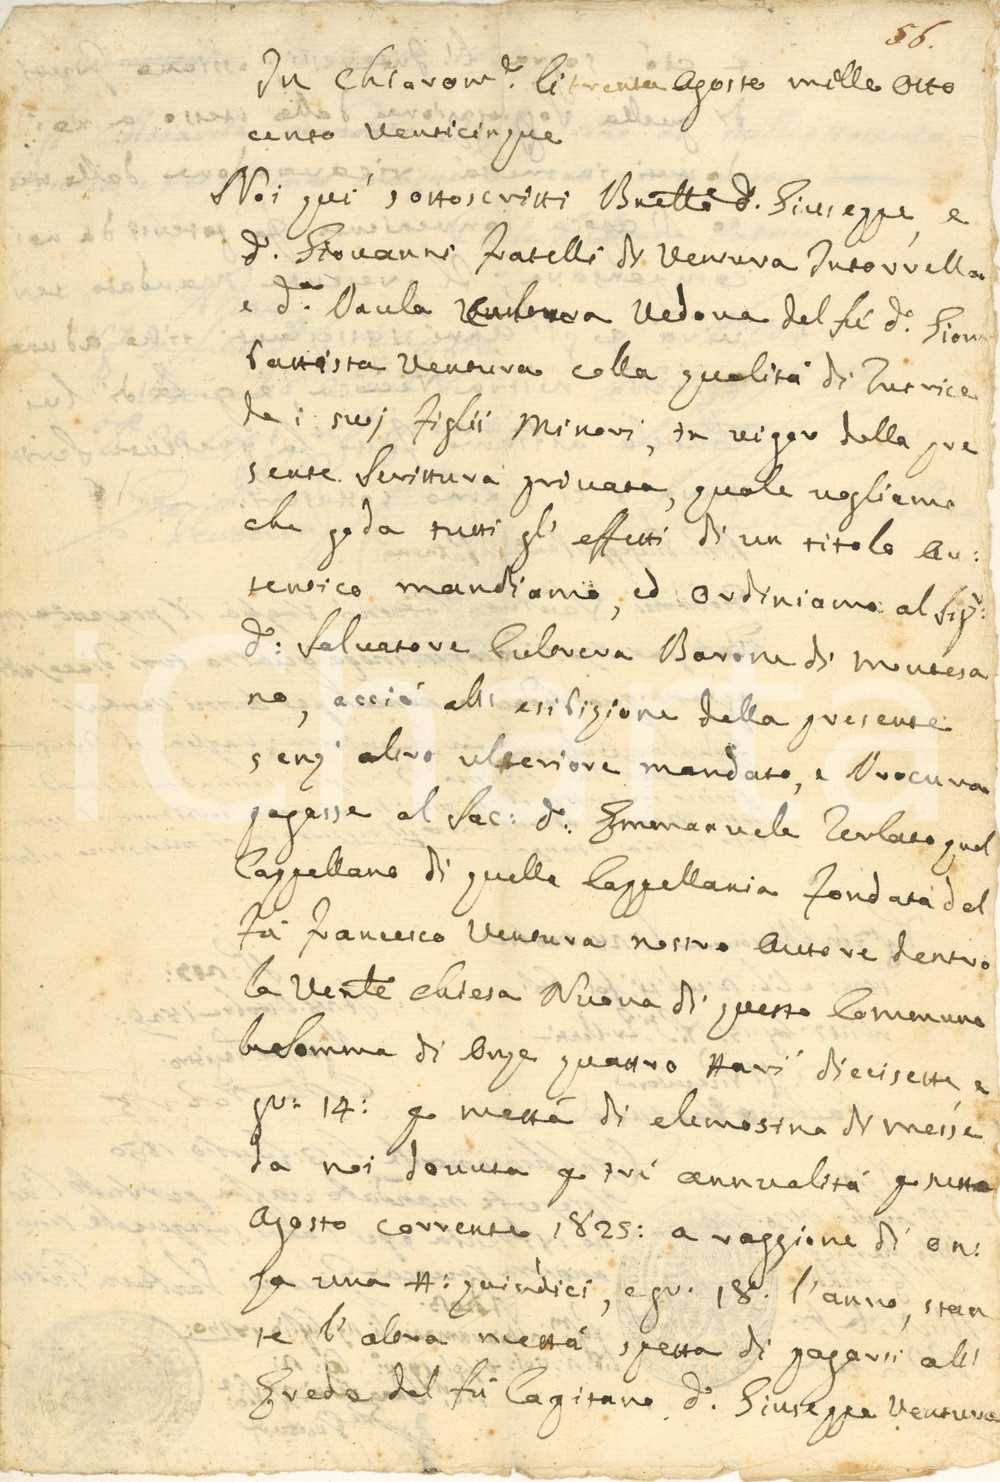 56.
In Chiarom.e li trenta Agosto mille otto
cento venticinque
Noi quí sottoscritti d. Giuseppe, e
d. Giovanni fratelli di Ventura Intorrella
e d.a Paula Vedova del fú d. Giov:
battista Ventura colla qualitá di Tutrice
de i suoj figlii Minori, in vigor della pre
sente Scrittura privata, quale vogliamo
che goda tutti gl' effetti di un titolo Au:
tentico mandiamo, ed ordiniamo al Sig.r:
d: Salvatore Culorera Barone di Montesa
no, acció all' esibizione della presente
senz' altro ulteriore mandato, e Procura
pagasse al Sac: d: Emmanuele Terlato qual
Cappellano di quella Cappellania fondata dal
fú Francesco Ventura nostro Autore dentro
la Ven.le Chiesa Nuova di questo Comune
la Somma di Onze quattro ttarí diecisette, e
gr: 14: p mettá di elemosina di messe
da noi dovuta p tré annualitá p tutto
Agosto corrente 1825: a raggione di on:
za una tt: quindici, e gr. 18. l'anno, stan
te l'altra mettá spetta di pagarsi all'
Erede del fú Capitano d. Giuseppe Ventura